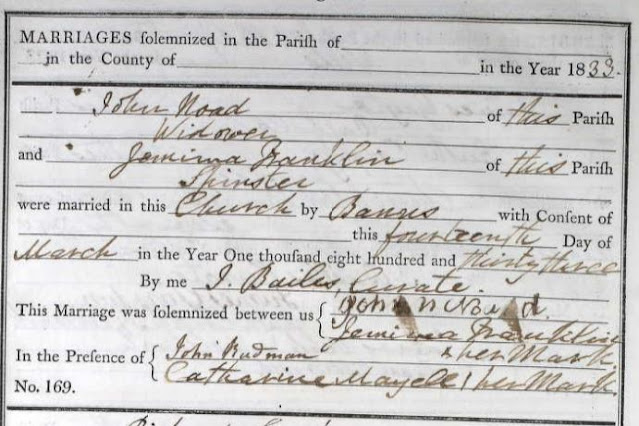 MARRIAGES solemnized in the Parish of
in the County of in the Year 1833.
John Noad of this Parish
Widower
and Jemima Franklin of this Parish
Spinster
were married in this Church by Banns with Consent of
this fourteenth Day of
March in the Year One thousand eight hundred and thirty three
By me J. Bailes, Curate.
This Marriage was solemnized between us { John Noad.
Jemima Franklin
In the Presence of { John Rudman & her Mark
Catharine Mayell / her Mark.
No. 169.